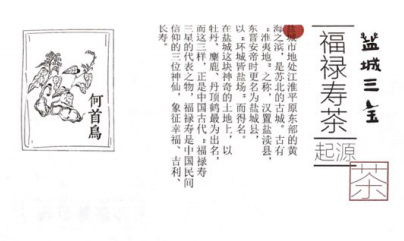 盐城三宝
福禄寿茶
起源
茶
盐城市地处江淮平原东部的黄
海之滨，是苏北的古城。古有
“淮夷地”之称，汉置盐渎县，
东晋安帝时更名为盐城县，
以“环城皆盐场”而得名。
在盐城这块神奇的土地上，以
牡丹、麋鹿、丹顶鹤最为出名，
而这三样，正是中国古代“福禄寿”
三星的代表之物，福禄寿是中国民间
信仰的三位神仙，象征幸福、吉利、
长寿。
何首烏